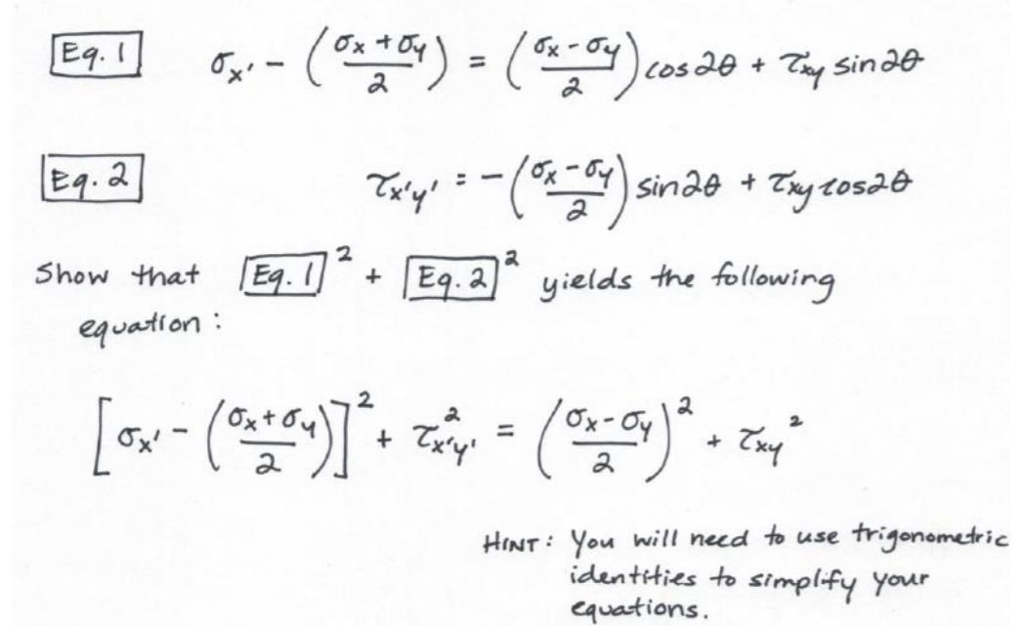 Eq. 1 σx' - ( σx + σy / 2 ) = ( σx - σy / 2 ) cos 2θ + τxy sin 2θ
Eq. 2 τx'y' = - ( σx - σy / 2 ) sin 2θ + τxy cos 2θ
Show that Eq. 1 ² + Eq. 2 ² yields the following
equation :
[ σx' - ( σx + σy / 2 ) ]² + τx'y'² = ( σx - σy / 2 )² + τxy²
HINT : You will need to use trigonometric
identities to simplify your
equations.